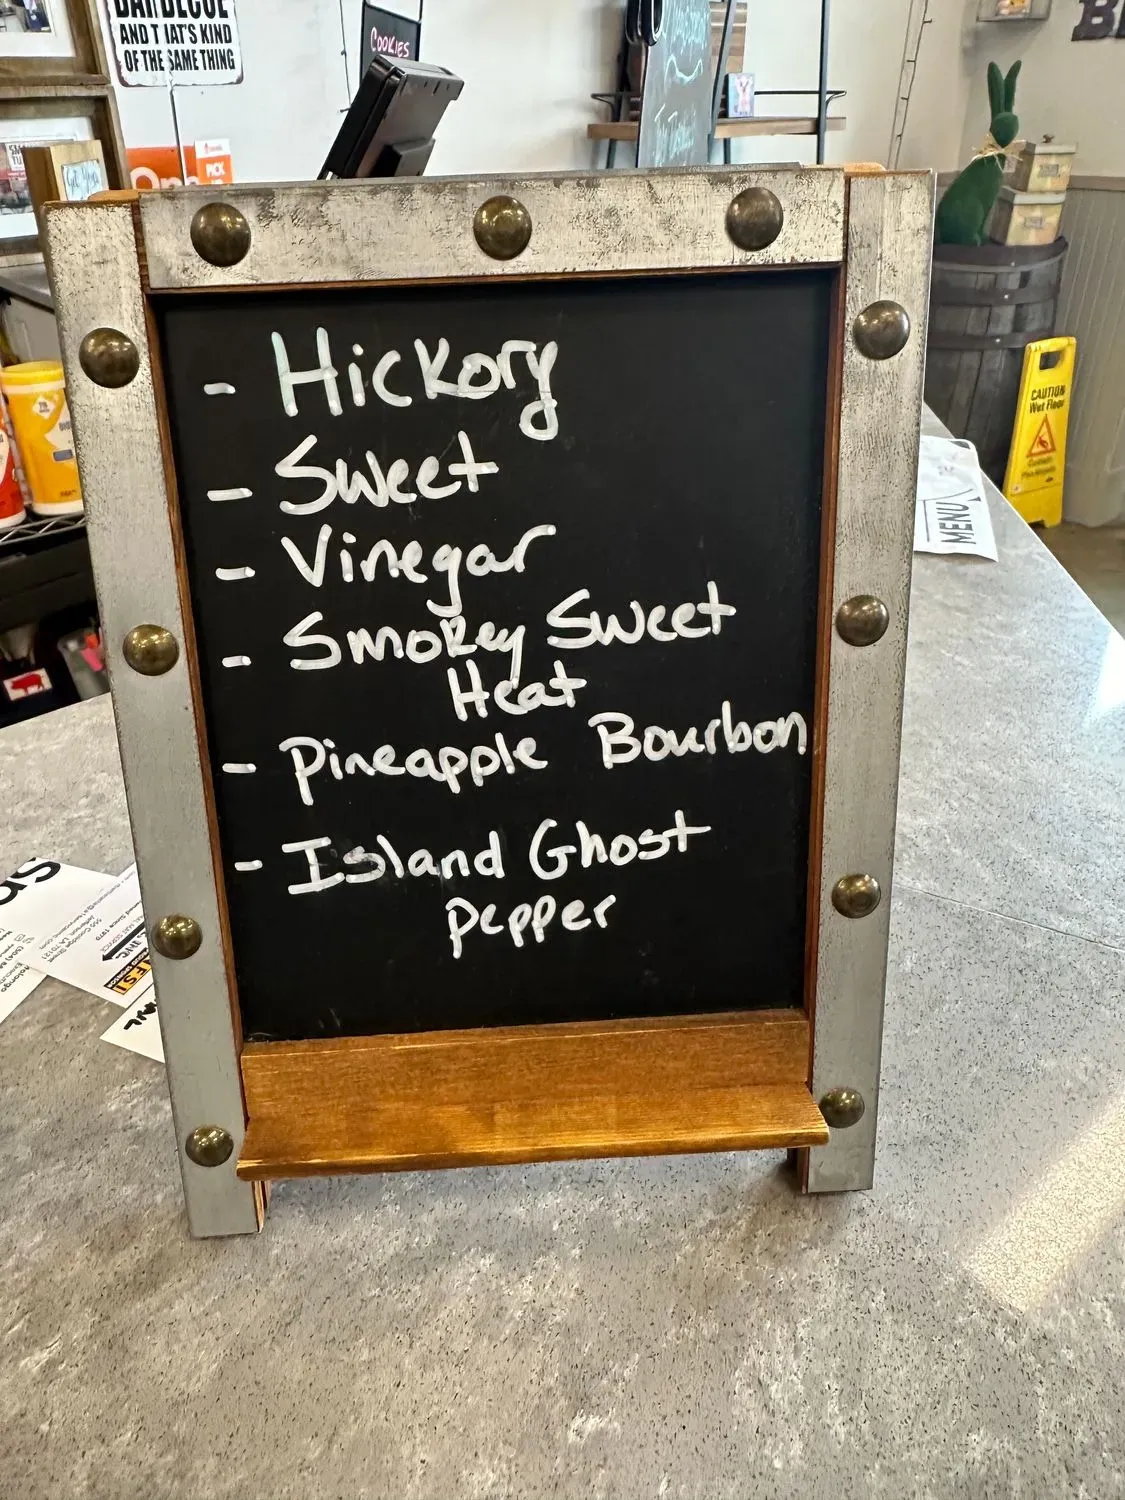 BARBECUE
AND THAT'S KIND
OF THE SAME THING
COOKIES
PICK
- Hickory
- Sweet
- Vinegar
- Smokey Sweet
Heat
- Pineapple Bourbon
- Island Ghost
Pepper
CAUTION
Wet Floor
MENU